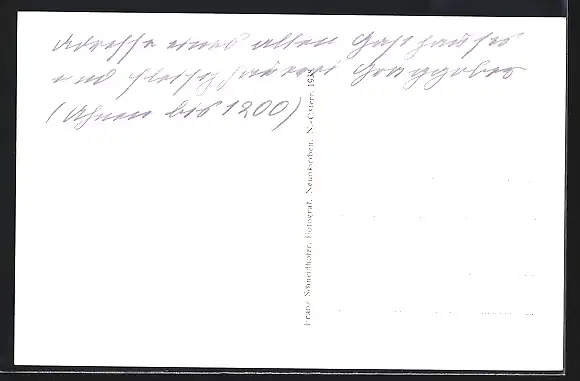 Adresse eines alten Gasthauses
und Fleischhauerei
(Ahnen bis 1200)
Franz Schneidhofer, Fotograf, Neunkirchen, N.-Österr. 193